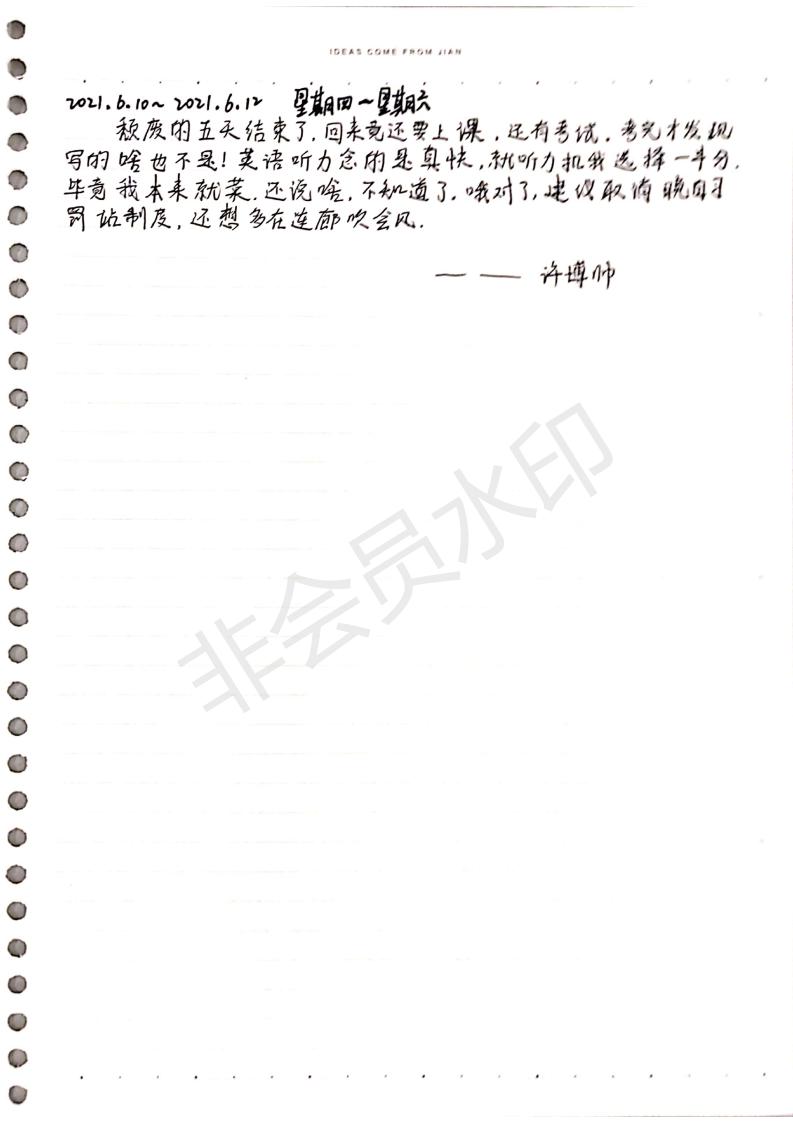 IDEAS COME FROM JIAN
2021.6.10~2021.6.12 星期四~星期六
颓废的五天结束了,回来竟还要上课,还有考试,考完才发现
写的啥也不是!英语听力念的是真快,就听力扣我选择一半分.
毕竟我本来就菜,还说啥,不知道了,哦对了,建议取消晚自习
罚站制度,还想多在连廊吹会风.
—— 许博帅
非会员水印